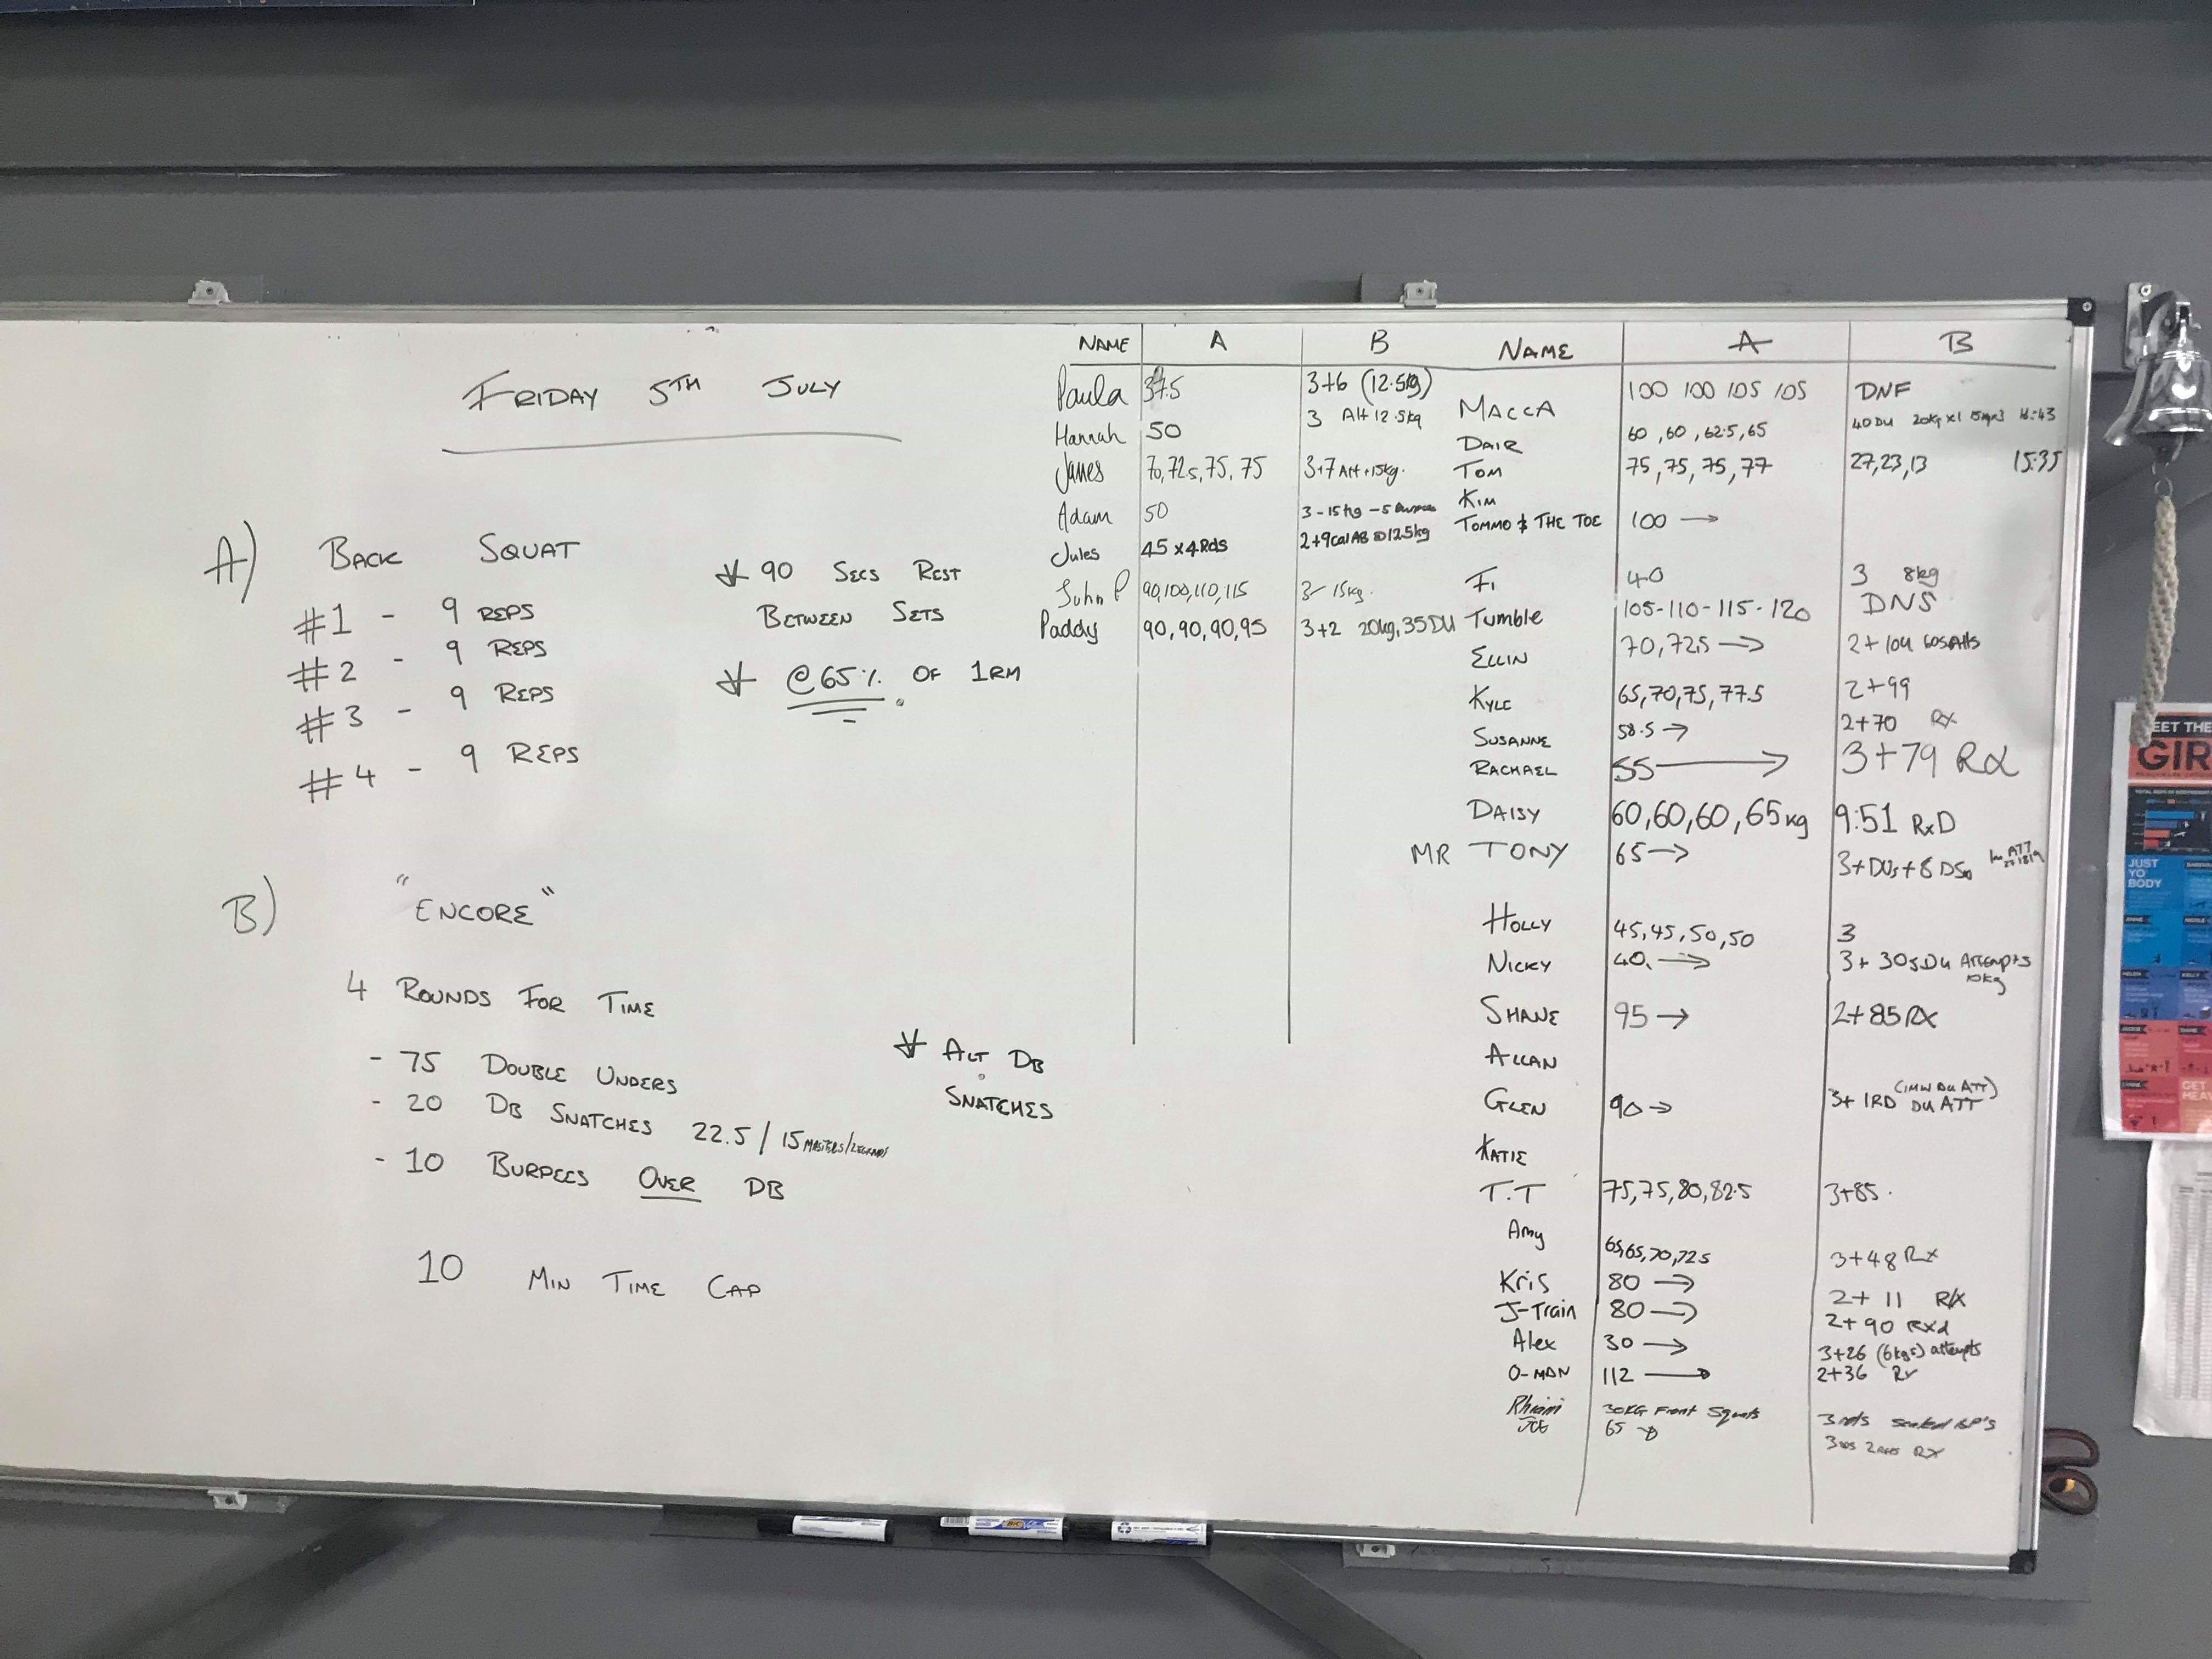 FRIDAY 5TH JULY
A) BACK SQUAT
#1 - 9 REPS
#2 - 9 REPS
#3 - 9 REPS
#4 - 9 REPS
* 90 SECS REST
BETWEEN SETS
* @65% OF 1RM
B) "ENCORE"
4 ROUNDS FOR TIME
- 75 DOUBLE UNDERS
- 20 DB SNATCHES 22.5/15 MASTERS/LEGENDS
- 10 BURPEES OVER DB
* ALT DB
SNATCHES
10 MIN TIME CAP
NAME A B
Paula 37.5 3+6 (12.5kg)
Hannah 50 3 Alt 12.5kg
James 70, 72.5, 75, 75 3+7 Att +15kg.
Adam 50 3 - 15kg - 5
Jules 45 x 4 Rds 2+9calAB @12.5kg
John P 90,100,110,115 3 - 15kg.
Paddy 90, 90, 90, 95 3+2 20kg, 35DU
NAME A B
MACCA 100 100 105 105 DNF
DAIR 60, 60, 62.5, 65 40DU 20kg x1 16:43
TOM 75, 75, 75, 77 27, 23, 13 15:35
KIM
TOMMO & THE TOE 100 →
FI 40 3 8kg
Tumble 105-110-115-120 DNS
ELLIN 70, 72.5 → 2+104 60s Atts
KYLE 65, 70, 75, 77.5 2+99
SUSANNE 58.5 → 2+70 RX
RACHAEL 55 → 3+79 Rx
DAISY 60, 60, 60, 65kg 9:51 RxD
MR TONY 65 → 3+DUs+8 DSn
HOLLY 45, 45, 50, 50 3
NICKY 40. → 3+ 30s DU ATTEMPTS
10kg
SHANE 95 → 2+85 RX
ALLAN
GLEN 90 → 3+ 1RD (1MIN DU ATT)
DU ATT
KATIE
T.T 75, 75, 80, 82.5 3+85.
Amy 65, 65, 70, 72.5 3+48 Rx
Kris 80 → 2+ 11 RX
J-Train 80 → 2+90 RXd
Alex 30 → 3+26 (6kgs) attempts
O-MAN 112 → 2+36 Rx
30KG Front Squats 3 rds
JOE 65 → RX
MEET THE
GIR
JUST
YO
BODY
GET
HEA
BIC